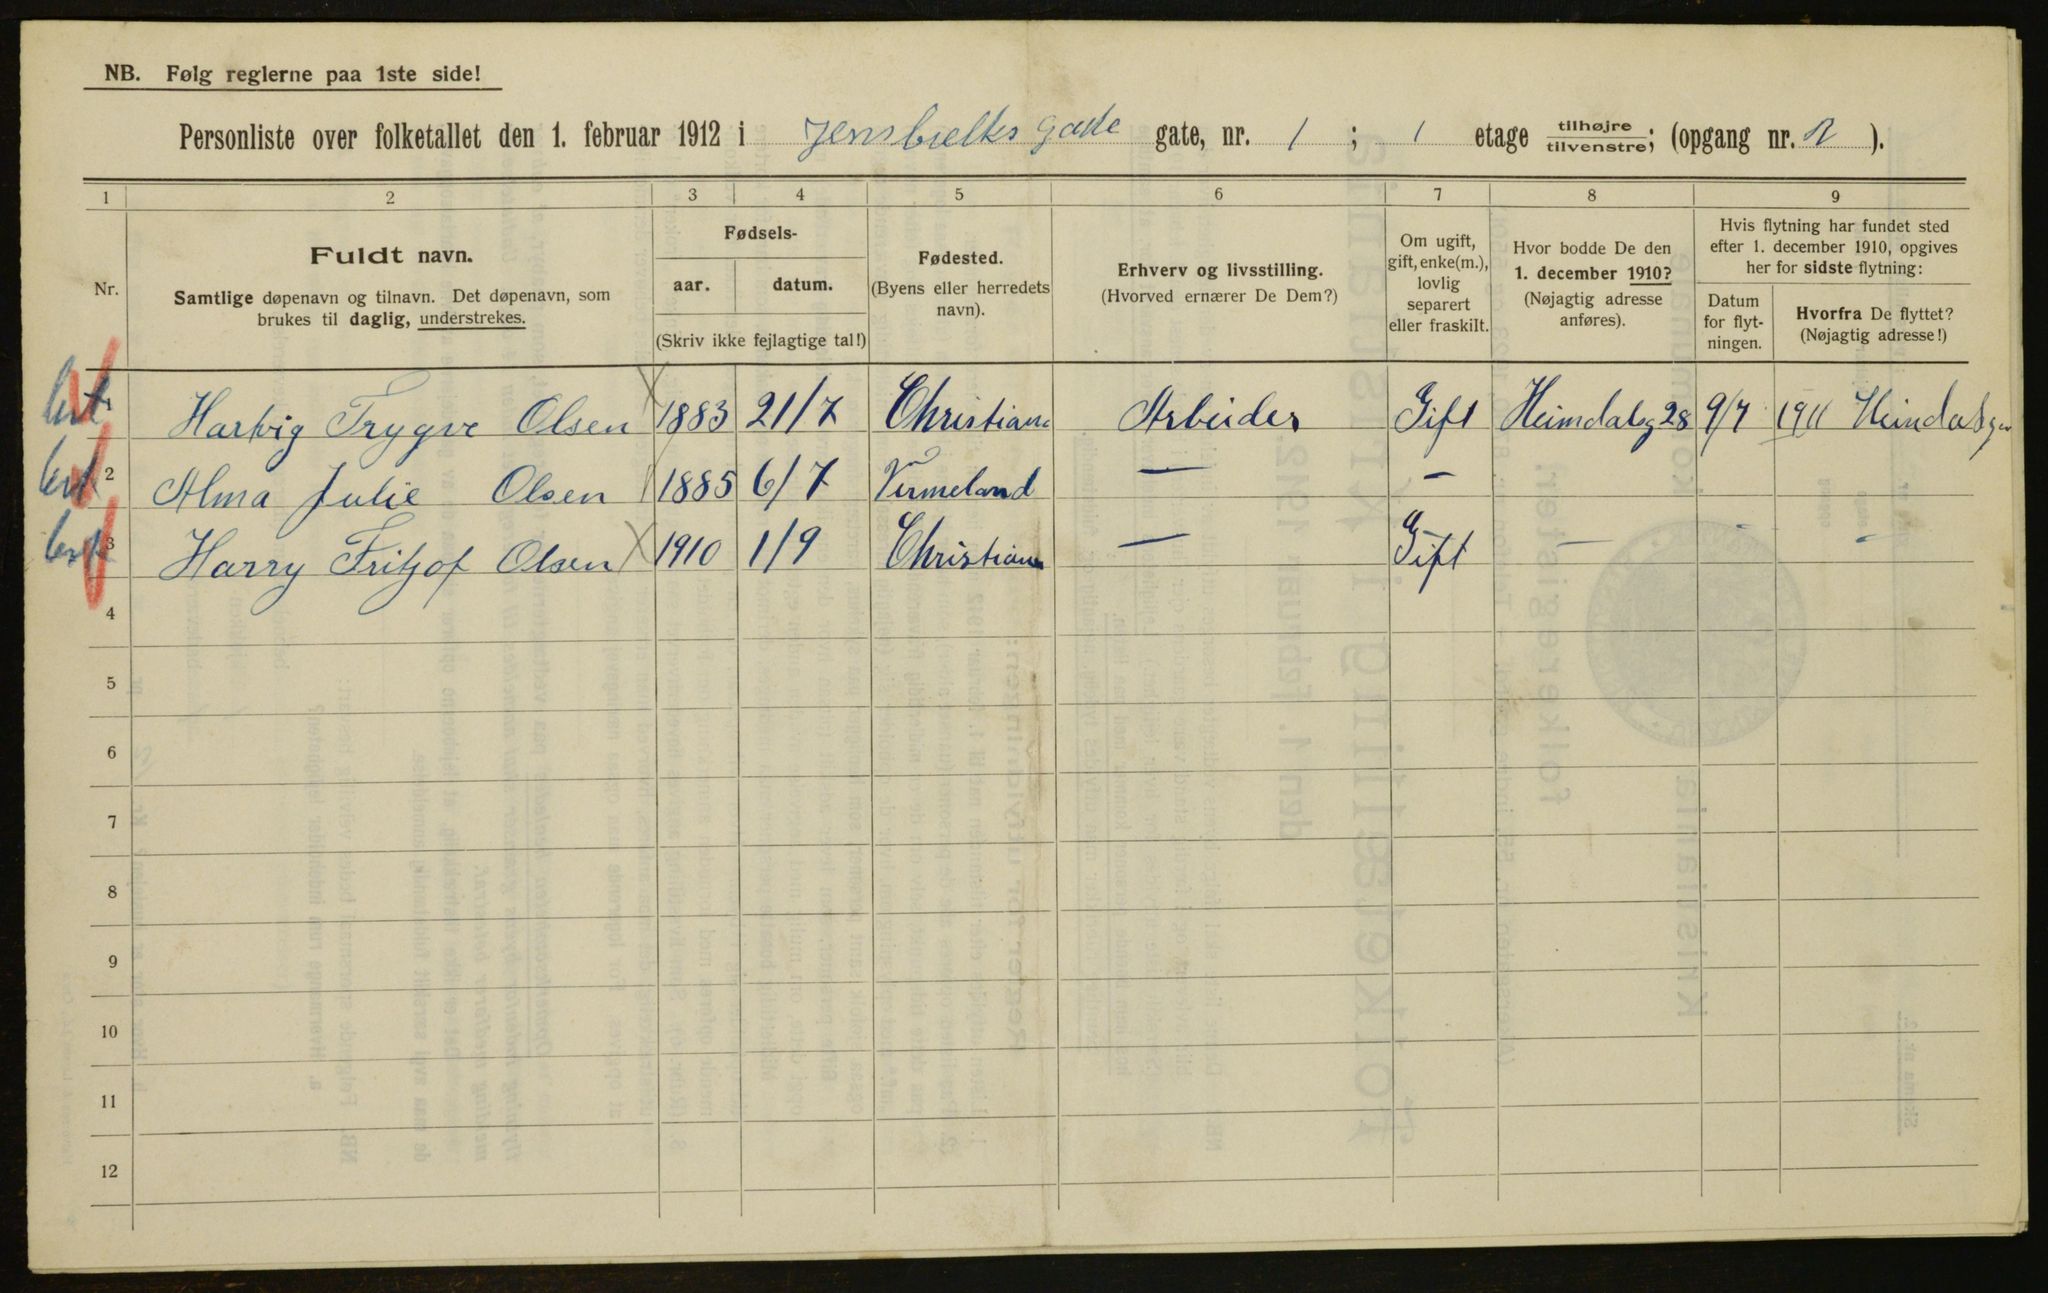 NB. Følg reglerne paa 1ste side!
Personliste over folketallet den 1. februar 1912 i Jensbielkes Gade gate, nr. 1 ; 1 etage tilhøjre tilvenstre; (opgang nr. ).
1 2 3 4 5 6 7 8 9
Nr.
Fuldt navn.
Samtlige døpenavn og tilnavn. Det døpenavn, som
brukes til daglig, understrekes.
Fødsels-
aar. datum.
(Skriv ikke fejlagtige tal!)
Fødested.
(Byens eller herredets
navn).
Erhverv og livsstilling.
(Hvorved ernærer De Dem?)
Om ugift,
gift, enke(m.),
lovlig
separert
eller fraskilt.
Hvor bodde De den
1. december 1910?
(Nøjagtig adresse
anføres).
Hvis flytning har fundet sted
efter 1. december 1910, opgives
her for sidste flytning:
Datum
for flyt-
ningen.
Hvorfra De flyttet?
(Nøjagtig adresse!)
Hartvig Trygve Olsen 1883 21/7 Christiana Arbeider Gift Heimdalsg 28 9/7 1911
2 Alma Julie Olsen 1885 6/7 Vermeland — -
3 Harry Fritjof Olsen 1910 1/9 Christiana — Gift — - -
4
5
6
7
8
9
10
11
12